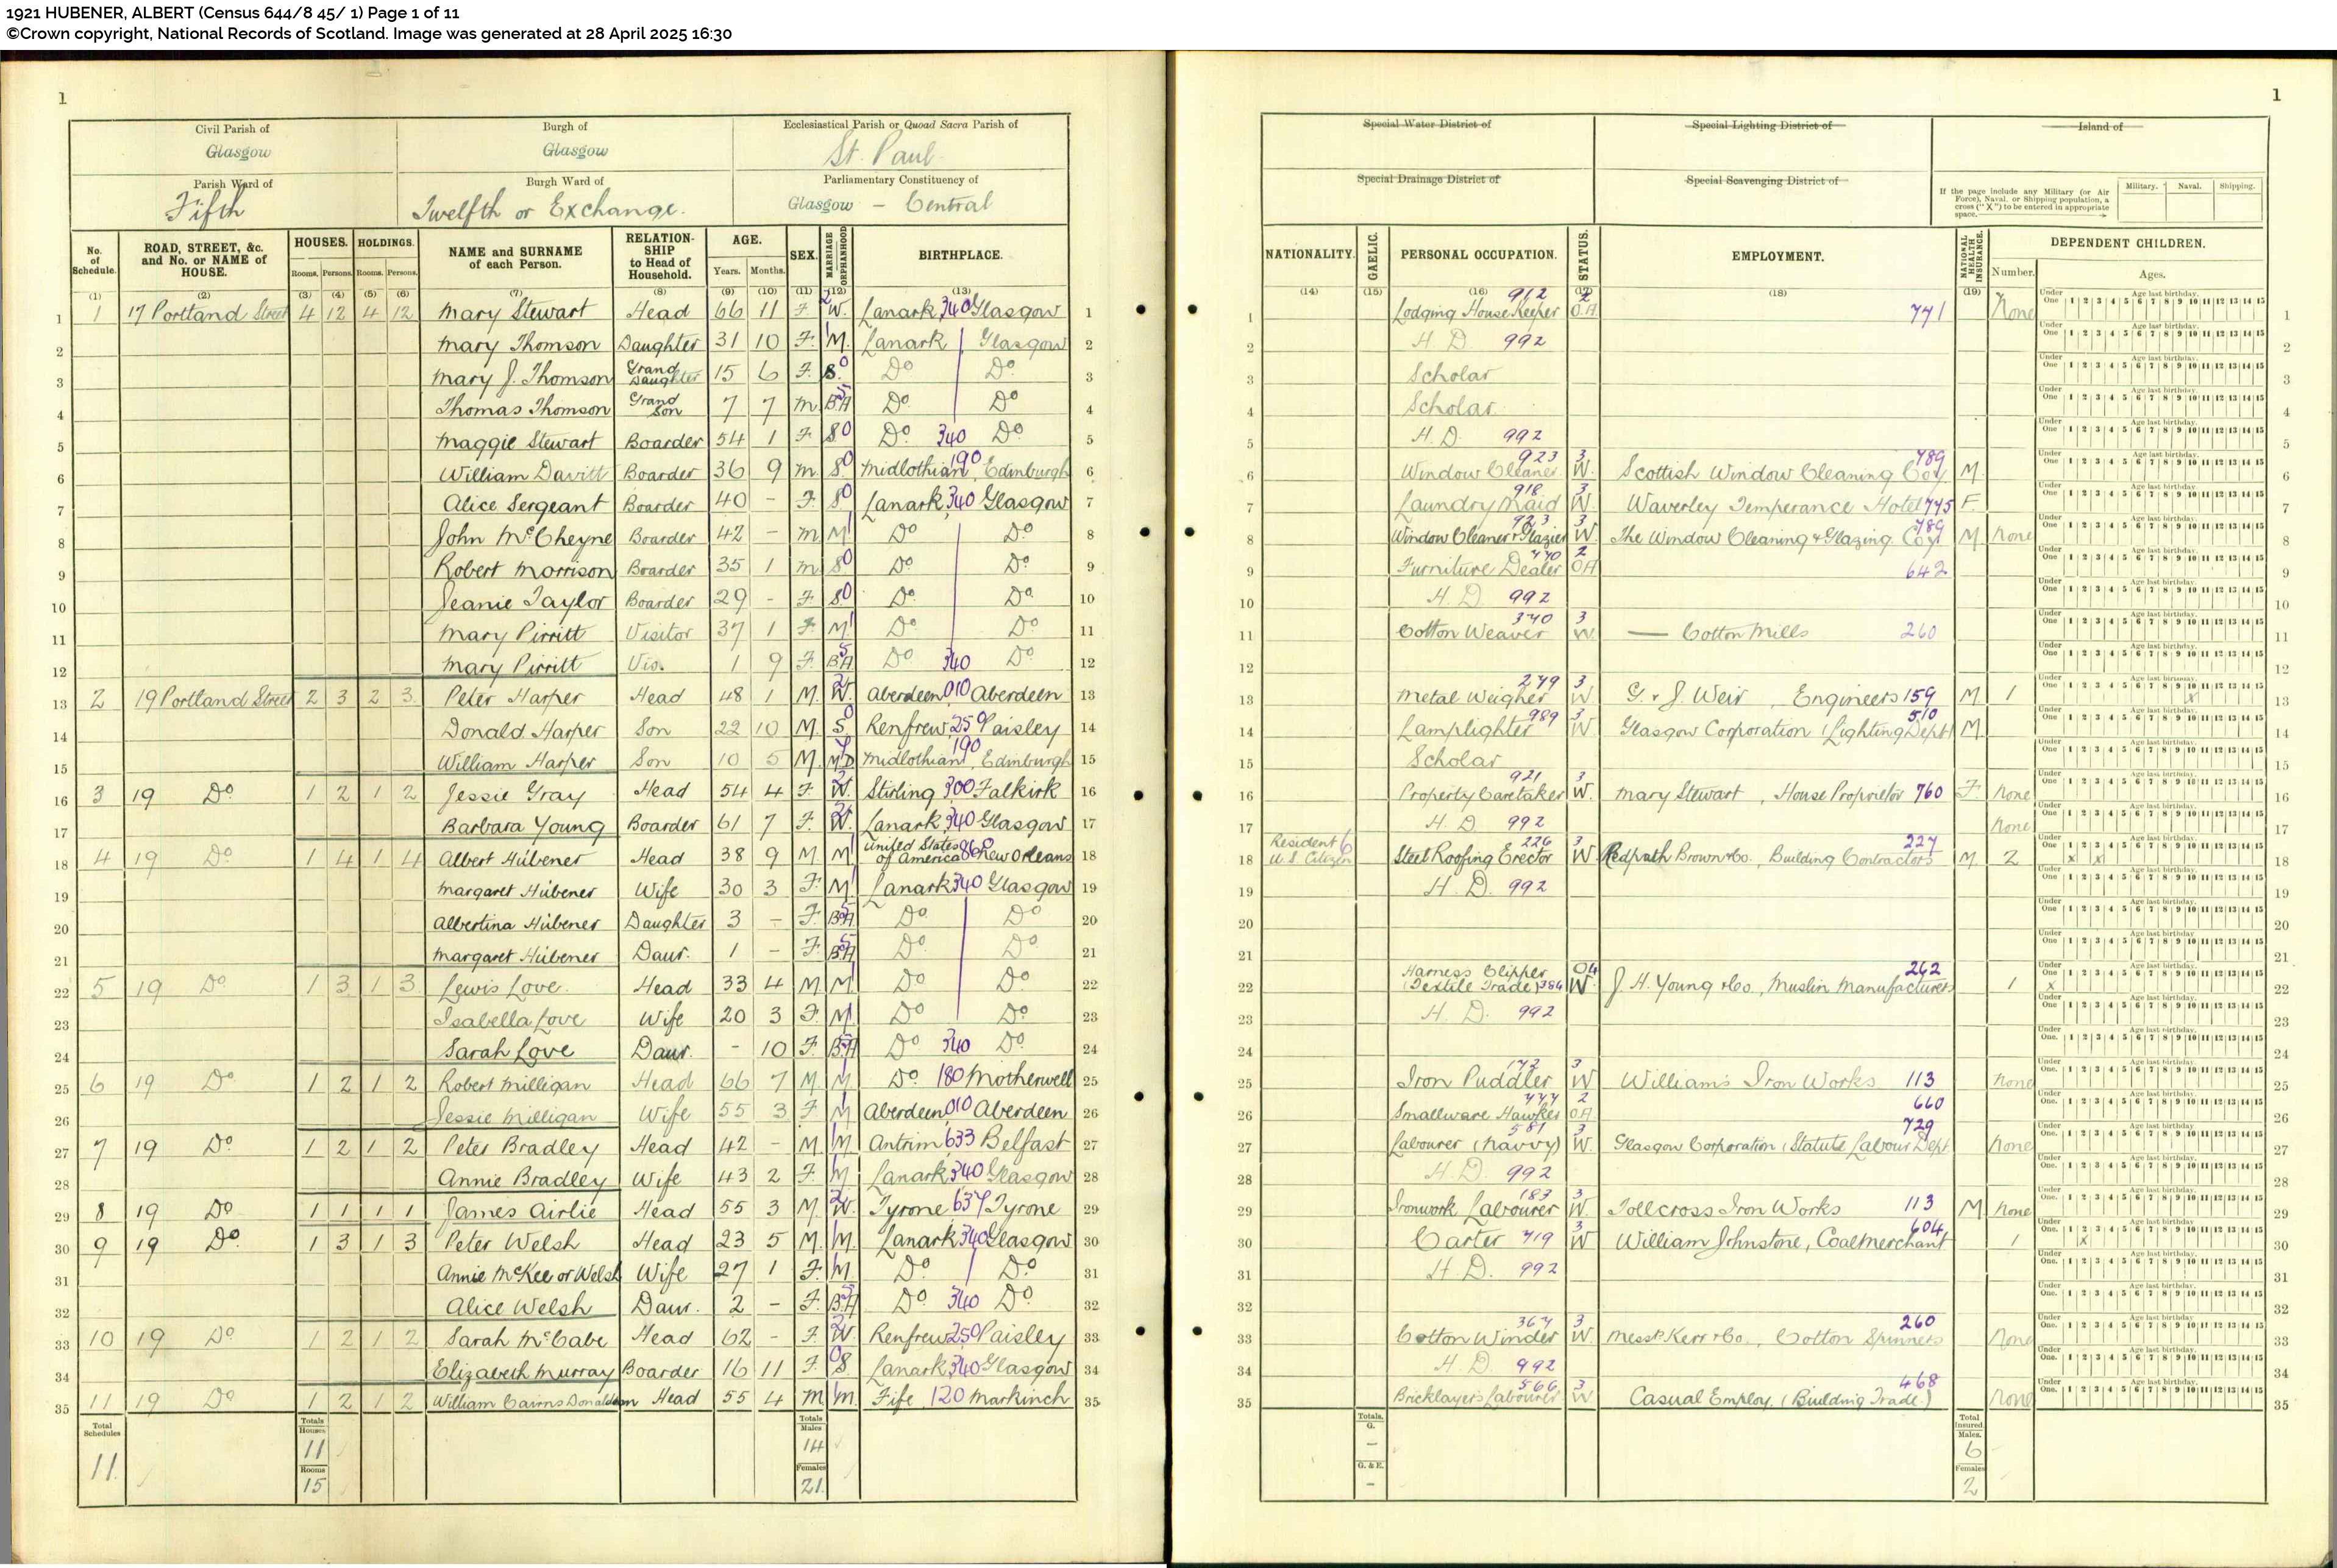 1921 HUBENER, ALBERT (Census 644/8 45/ 1) Page 1 of 11
©Crown copyright, National Records of Scotland. Image was generated at 28 April 2025 16:30
1
1
Civil Parish of Burgh of Ecclesiastical Parish or Quoad Sacra Parish of
Glasgow Glasgow St. Paul
Parish Ward of Burgh Ward of Parliamentary Constituency of
Fifth Twelfth or Exchange. Glasgow – Central
Special Water District of Special Lighting District of Island of
Special Drainage District of Special Scavenging District of
If the page include any Military (or Air Force), Naval, or Shipping population, a cross ("X") to be entered in appropriate space. Military. Naval. Shipping.
No. of Schedule. ROAD, STREET, &c. and No. or NAME of HOUSE. HOUSES. Rooms. Persons. HOLDINGS. Rooms. Persons. NAME and SURNAME of each Person. RELATIONSHIP to Head of Household. AGE. Years. Months. SEX. MARRIAGE ORPHANHOOD BIRTHPLACE.
NATIONALITY. GAELIC. PERSONAL OCCUPATION. STATUS. EMPLOYMENT. NATIONAL HEALTH INSURANCE. DEPENDENT CHILDREN. Number. Ages.
(1) (2) (3) (4) (5) (6) (7) (8) (9) (10) (11) (12) (13) (14) (15) (16) (17) (18) (19)
1 1 17 Portland Street 4 12 4 12 Mary Stewart Head 66 11 F. W. Lanark 340 Glasgow 1 Lodging House Keeper 912 O.A 2 741 None
2 Mary Thomson Daughter 31 10 F. M. Lanark Glasgow 2 H. D. 992
3 Mary J. Thomson Grand Daughter 15 6 F. S. 0 Do Do 3 Scholar
4 Thomas Thomson Grand Son 7 7 M B.A 5 Do Do 4 Scholar
5 Maggie Stewart Boarder 54 1 F S 0 Do 340 Do 5 H. D. 992
6 William Davitt Boarder 36 9 M. S 0 Midlothian 190, Edinburgh 6 Window Cleaner 923 W. 3 Scottish Window Cleaning Coy 789 M.
7 Alice Sergeant Boarder 40 – F. S 0 Lanark 340 Glasgow 7 Laundry Maid 918 W 3 Waverley Temperance Hotel 745 F.
8 John McCheyne Boarder 42 – M M 1 Do Do 8 Window Cleaner & Glazier 923 W. 3 The Window Cleaning & Glazing Coy 789 M None
9 Robert Morrison Boarder 35 1 M S 0 Do Do 9 Furniture Dealer 770 OA 2 642
10 Jeanie Taylor Boarder 29 – F. S 0 Do Do 10 H. D 992
11 Mary Pirritt Visitor 37 1 F. M 1 Do Do 11 Cotton Weaver 370 W 3 — Cotton Mills 260
12 Mary Pirritt Vis. 1 9 F. B.A 5 Do 340 Do 12
13 2 19 Portland Street 2 3 2 3 Peter Harper Head 48 1 M. W. 2 Aberdeen 010 Aberdeen 13 Metal Weigher 279 W 3 G. & J. Weir, Engineers 159 M 1 x
14 Donald Harper Son 22 10 M. S. 0 Renfrew 250 Paisley 14 Lamplighter 989 W 3 Glasgow Corporation (Lighting Dept) 510 M.
15 William Harper Son 10 5 M. M D Midlothian 190, Edinburgh 15 Scholar
16 3 19 Do 1 2 1 2 Jessie Gray Head 54 4 F. W. 2 Stirling 300 Falkirk 16 Property Caretaker 921 W. 3 Mary Stewart, House Proprietor 760 F. None
17 Barbara Young Boarder 61 7 F. W. 2 Lanark 340 Glasgow 17 H. D 992 None
18 4 19 Do 1 4 1 4 Albert Hübener Head 38 9 M M 1 United States of America 860 New Orleans 18 Resident 6 U.S. Citizen Steel Roofing Erector 226 W 3 Redpath Brown & Co. Building Contractors 227 M. 2 x x
19 Margaret Hübener Wife 30 3 F. M 1 Lanark 340 Glasgow 19 H. D. 992
20 Albertina Hübener Daughter 3 – F. B.A 5 Do Do 20
21 Margaret Hübener Daur. 1 – F. B.A 5 Do Do 21
22 5 19 Do 1 3 1 3 Lewis Love. Head 33 4 M M 1 Do Do 22 Harness Clipper (Textile Trade) 384 W. J. H. Young & Co., Muslin Manufacturers 262 1 x
23 Isabella Love Wife 20 3 F. M 1 Do Do 23 H. D. 992
24 Sarah Love Daur. – 10 F. B.A 5 Do 340 Do 24
25 6 19 Do 1 2 1 2 Robert Milligan Head 66 7 M. M 1 Do 180 Motherwell 25 Iron Puddler 172 W 3 William's Iron Works 113 None
26 Jessie Milligan Wife 55 3 F. M 1 Aberdeen 010 Aberdeen 26 Smallware Hawker 777 OA 2 660
27 7 19 Do 1 2 1 2 Peter Bradley Head 42 – M. M 1 Antrim 633 Belfast 27 Labourer (Navvy) 581 W. 3 Glasgow Corporation (Statute Labour Dept 729 None
28 Annie Bradley Wife 43 2 F. M 1 Lanark 340 Glasgow 28 H. D. 992
29 8 19 Do 1 1 1 1 James Airlie Head 55 3 M. W. 2 Tyrone 637 Tyrone 29 Ironwork Labourer 183 W. 3 Tollcross Iron Works 113 M None
30 9 19 Do 1 3 1 3 Peter Welsh Head 23 5 M. M. 1 Lanark 340 Glasgow 30 Carter 719 W 3 William Johnstone, Coal Merchant 604 1 x
31 Annie McKee or Welsh Wife 27 1 F. M 1 Do Do 31 H. D. 992
32 Alice Welsh Daur. 2 – F. B.A 5 Do 340 Do 32
33 10 19 Do 1 2 1 2 Sarah McCabe Head 62 – F. W. 2 Renfrew 250 Paisley 33 Cotton Winder 367 W. 3 Messrs Kerr & Co., Cotton Spinners 260 None
34 Elizabeth Murray Boarder 16 11 F. S 0 Lanark 340 Glasgow 34 H. D. 992
35 11 19 Do 1 2 1 2 William Cairns Donaldson Head 55 4 M. M. 1 Fife 120 Markinch 35 Bricklayers Labourer 566 W 3 Casual Employ. (Building Trade.) 468 None
Total Schedules 11. Totals Houses 11 Rooms 15 Totals Males 14 Females 21. Totals. G. – G. & E. – Total Insured. Males. 6 Females 2